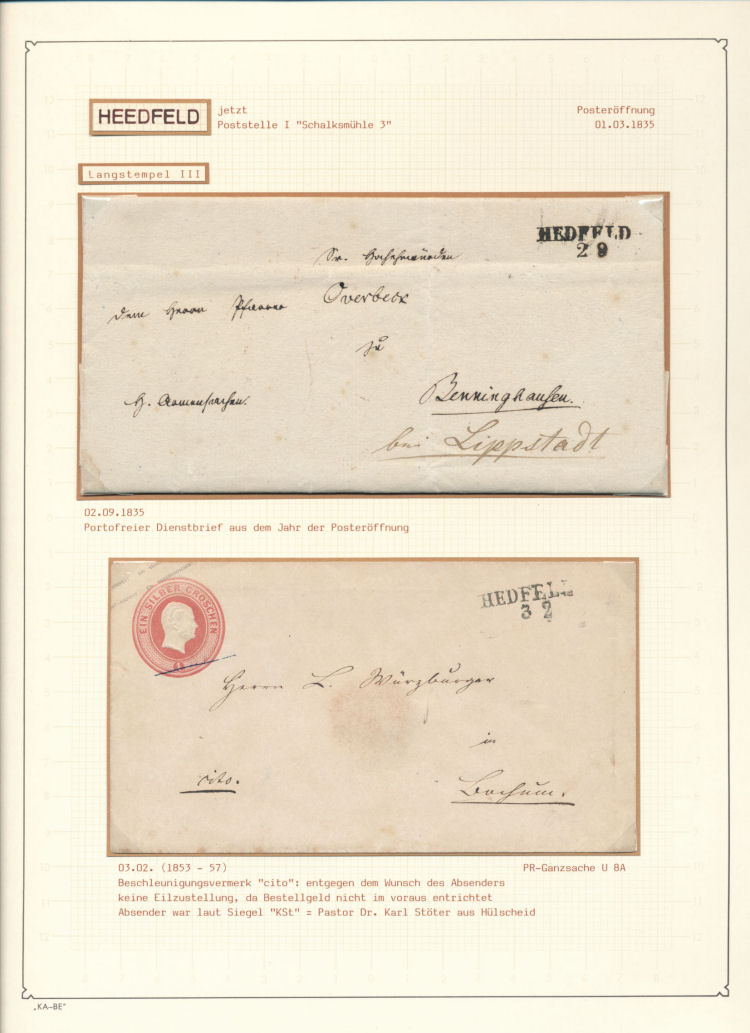 HEEDFELD
jetzt
Poststelle I "Schalksmühle 3"
Posteröffnung
01.03.1835
Langstempel III
HEDFELD
2 9
Sr. Hochehrwürden
dem Herrn Pfarrer Overbeck
zu
H. Armensachen.
Benninghausen.
bei Lippstadt
02.09.1835
Portofreier Dienstbrief aus dem Jahr der Posteröffnung
EIN SILBER GROSCHEN
1
HEDFELD
3 2
Herrn L. Würzburger
in
cito.
Bochum.
03.02. (1853 - 57)
PR-Ganzsache U 8A
Beschleunigungsvermerk "cito": entgegen dem Wunsch des Absenders
keine Eilzustellung, da Bestellgeld nicht im voraus entrichtet
Absender war laut Siegel "KSt" = Pastor Dr. Karl Stöter aus Hülscheid
„KA-BE"